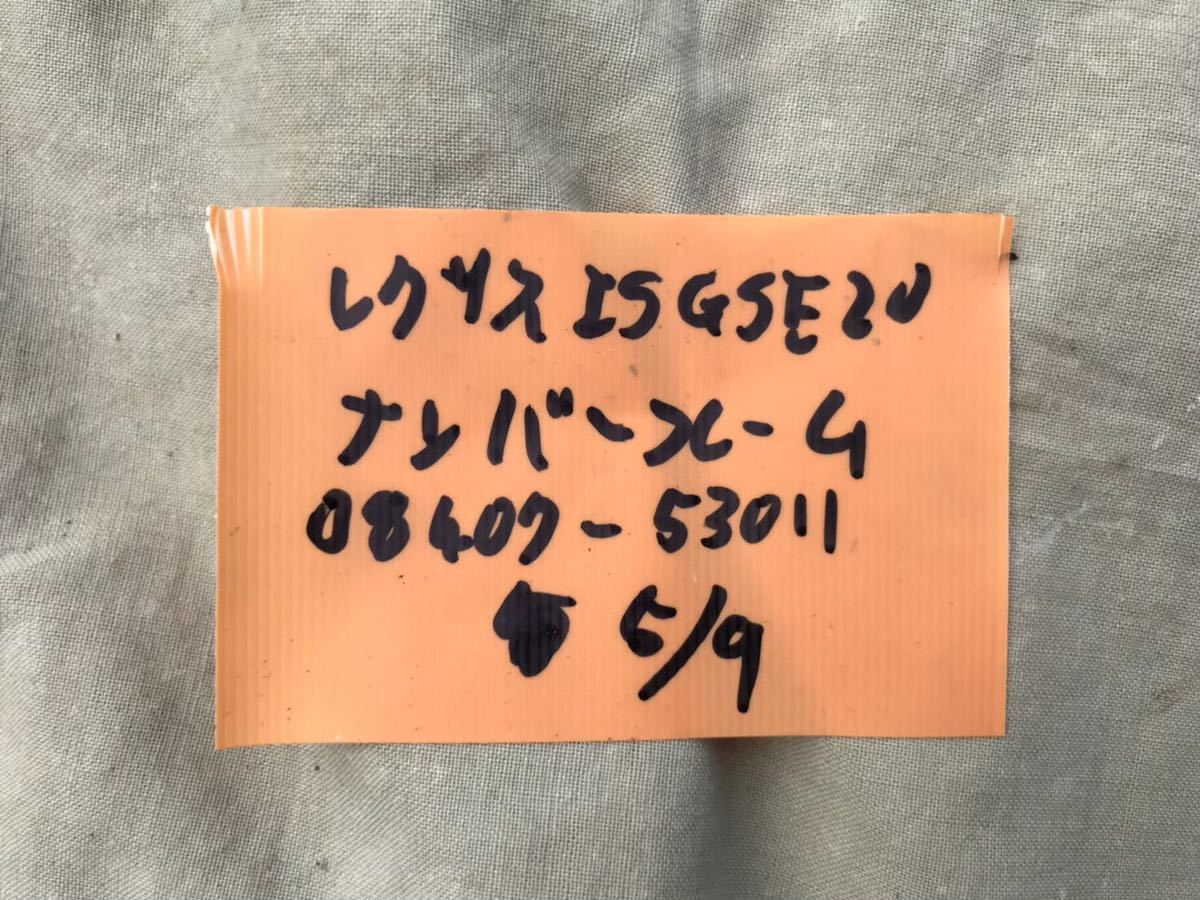 レクサス IS GSE20
ナンバーフレーム
08407-53011
5/9